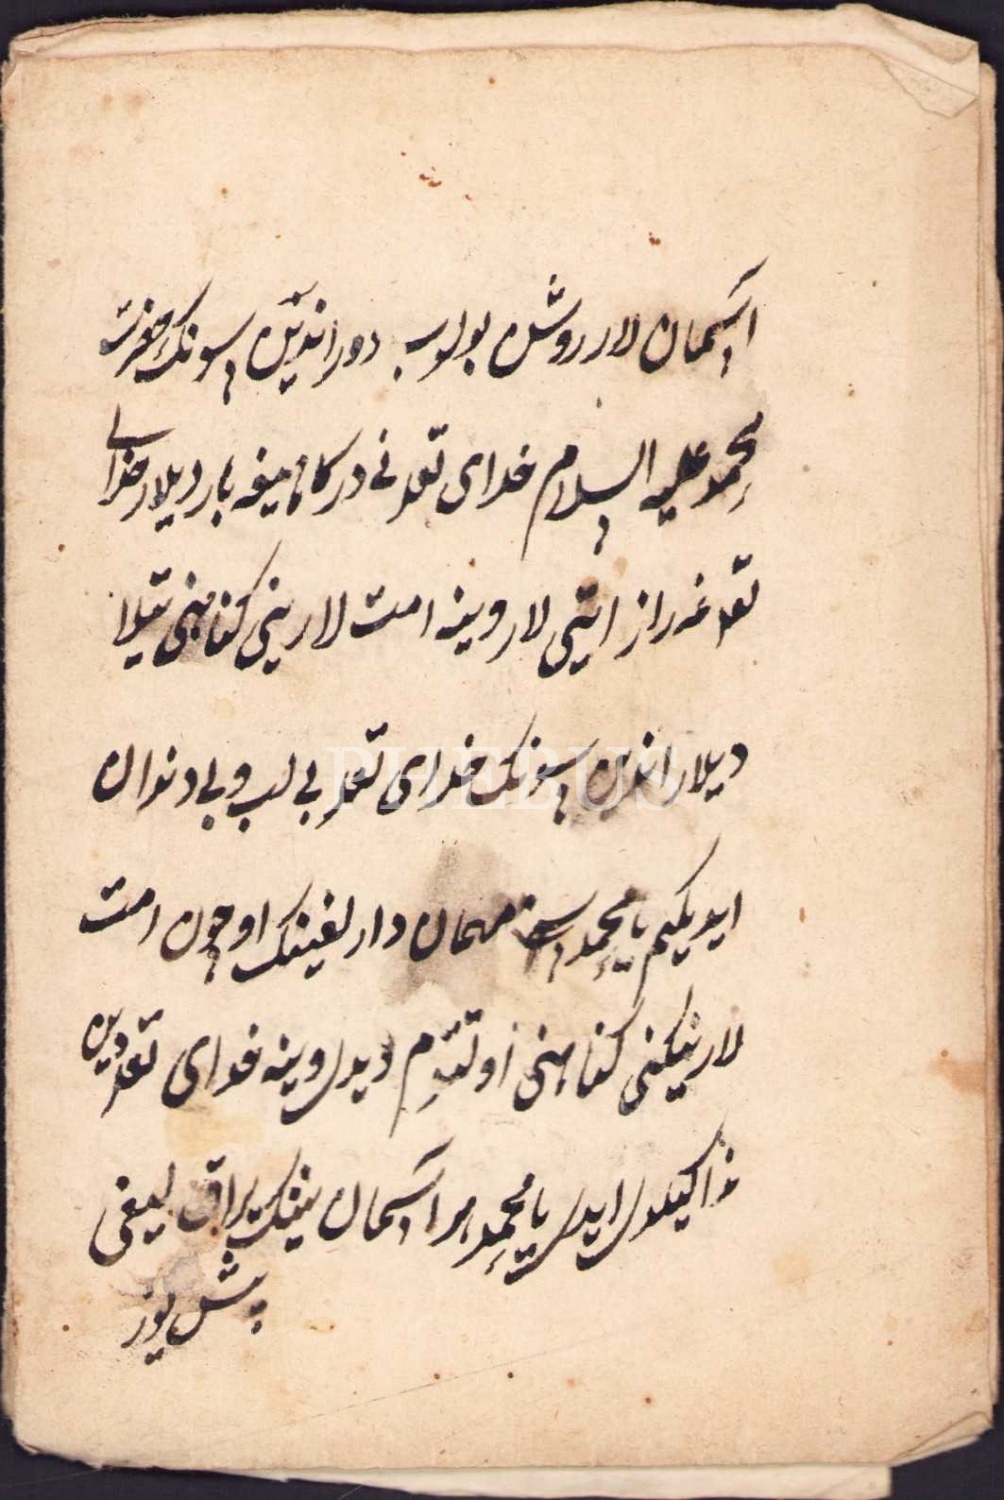 آسمان لار روشن بولوب دور اندین سونک حضرت
محمد علیه السلام خدای تعه نی درکاهیغه باردیلار خدای
تعه غه راز ایتی لار وینه امت لارینی کناهنی تیلا
دیلار اندین سونک خدای تعه بی لب و بی
ایدیکیم یا محمد مهمان دارلغینک اوچون امت
لارینکنی کناهنی اوتتیم دیدی وینه خدای تعه دین
ندا کیلدی ایدی یا محمد هر آسمان نینک یراق لیغی
PHEBUS
بیش یوز